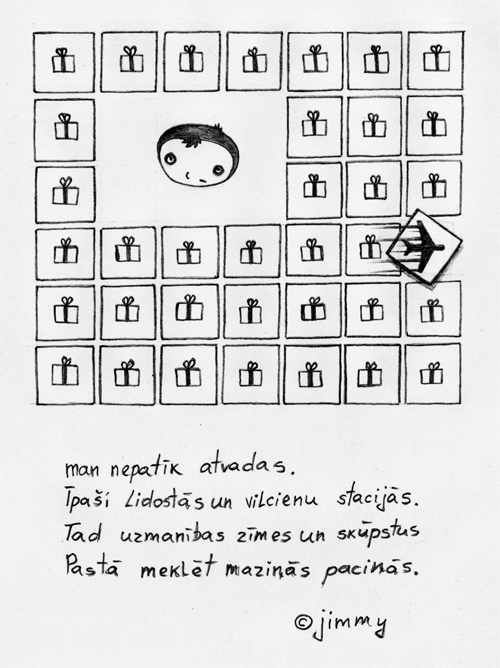 man nepatīk atvadas.
Īpaši Lidostās un vilcienu stacijās.
Tad uzmanības zīmes un skūpstus
Pastā meklēt maziņās paciņās.
© jimmy